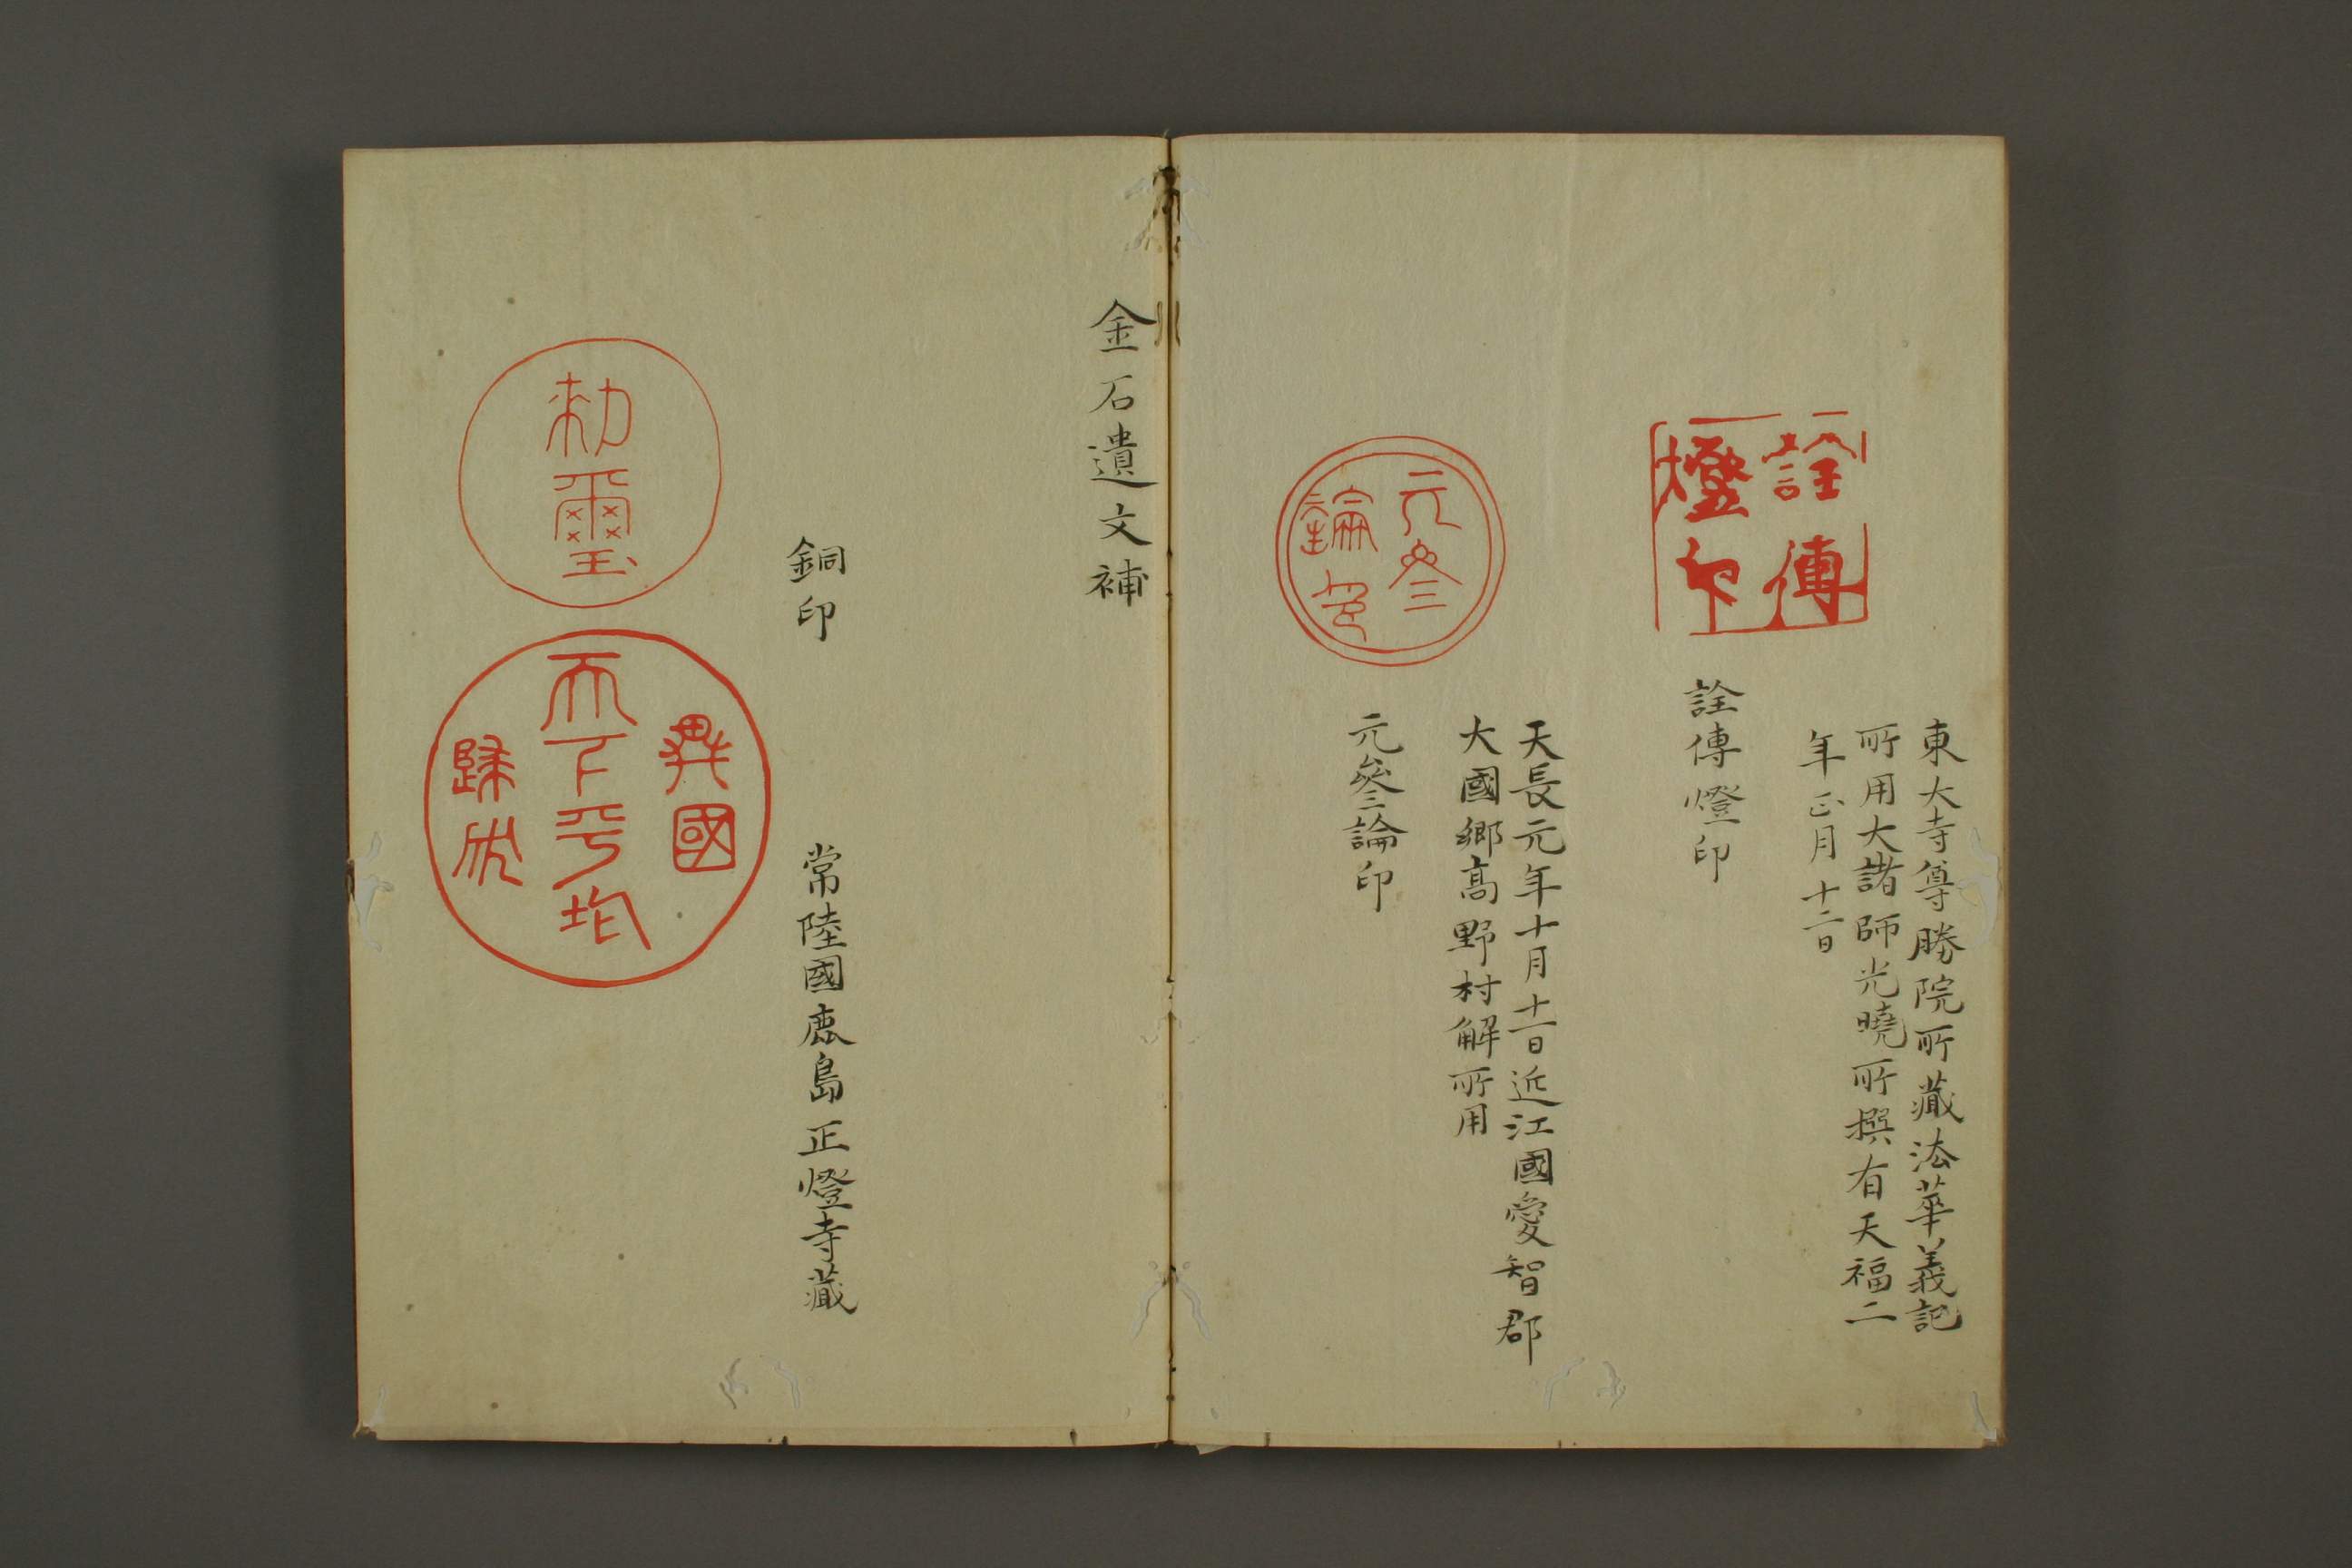 東大寺尊勝院所藏法華義記
所用大諸師光曉所撰有天福二
年正月十二日
詮傳
燈印
詮傳燈印
天長元年十月十一日近江國愛智郡
大國鄉高野村解所用
元叄
論印
元叄論印
金石遺文補
銅印
常陸國鹿島正燈寺藏
勅璽
異國
天下平均
歸伏